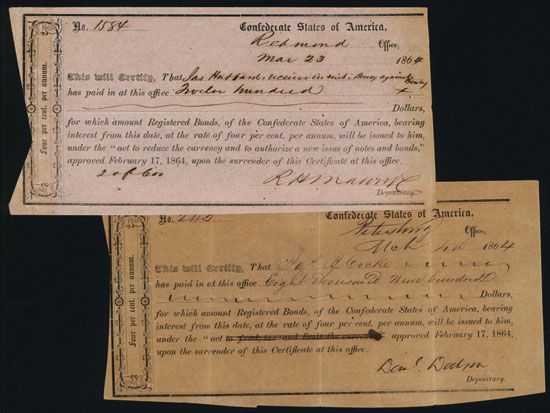 No. 1584
Confederate States of America,
Richmond Office,
Mar 23 1864
This will Certify, That Jas Hubbard receiver in suit
has paid in at this office Twelve hundred
Dollars,
for which amount Registered Bonds, of the Confederate States of America, bearing
interest from this date, at the rate of four per cent. per annum, will be issued to him,
under the "act to reduce the currency and to authorize a new issue of notes and bonds,"
approved February 17, 1864, upon the surrender of this Certificate at this office.
2 of 600
R H Maury
Depositary.
Four per cent. per annum.
No. 242
Confederate States of America,
Petersburg Office,
Mch 1864
This will Certify, That Cocke
has paid in at this office Eight thousand nine hundred
Dollars,
for which amount Registered Bonds, of the Confederate States of America, bearing
interest from this date, at the rate of four per cent. per annum, will be issued to him,
under the "act to fund, tax and limit the currency approved February 17, 1864,
upon the surrender of this Certificate at this office.
Danl. Dodson
Depositary.
Four per cent. per annum.